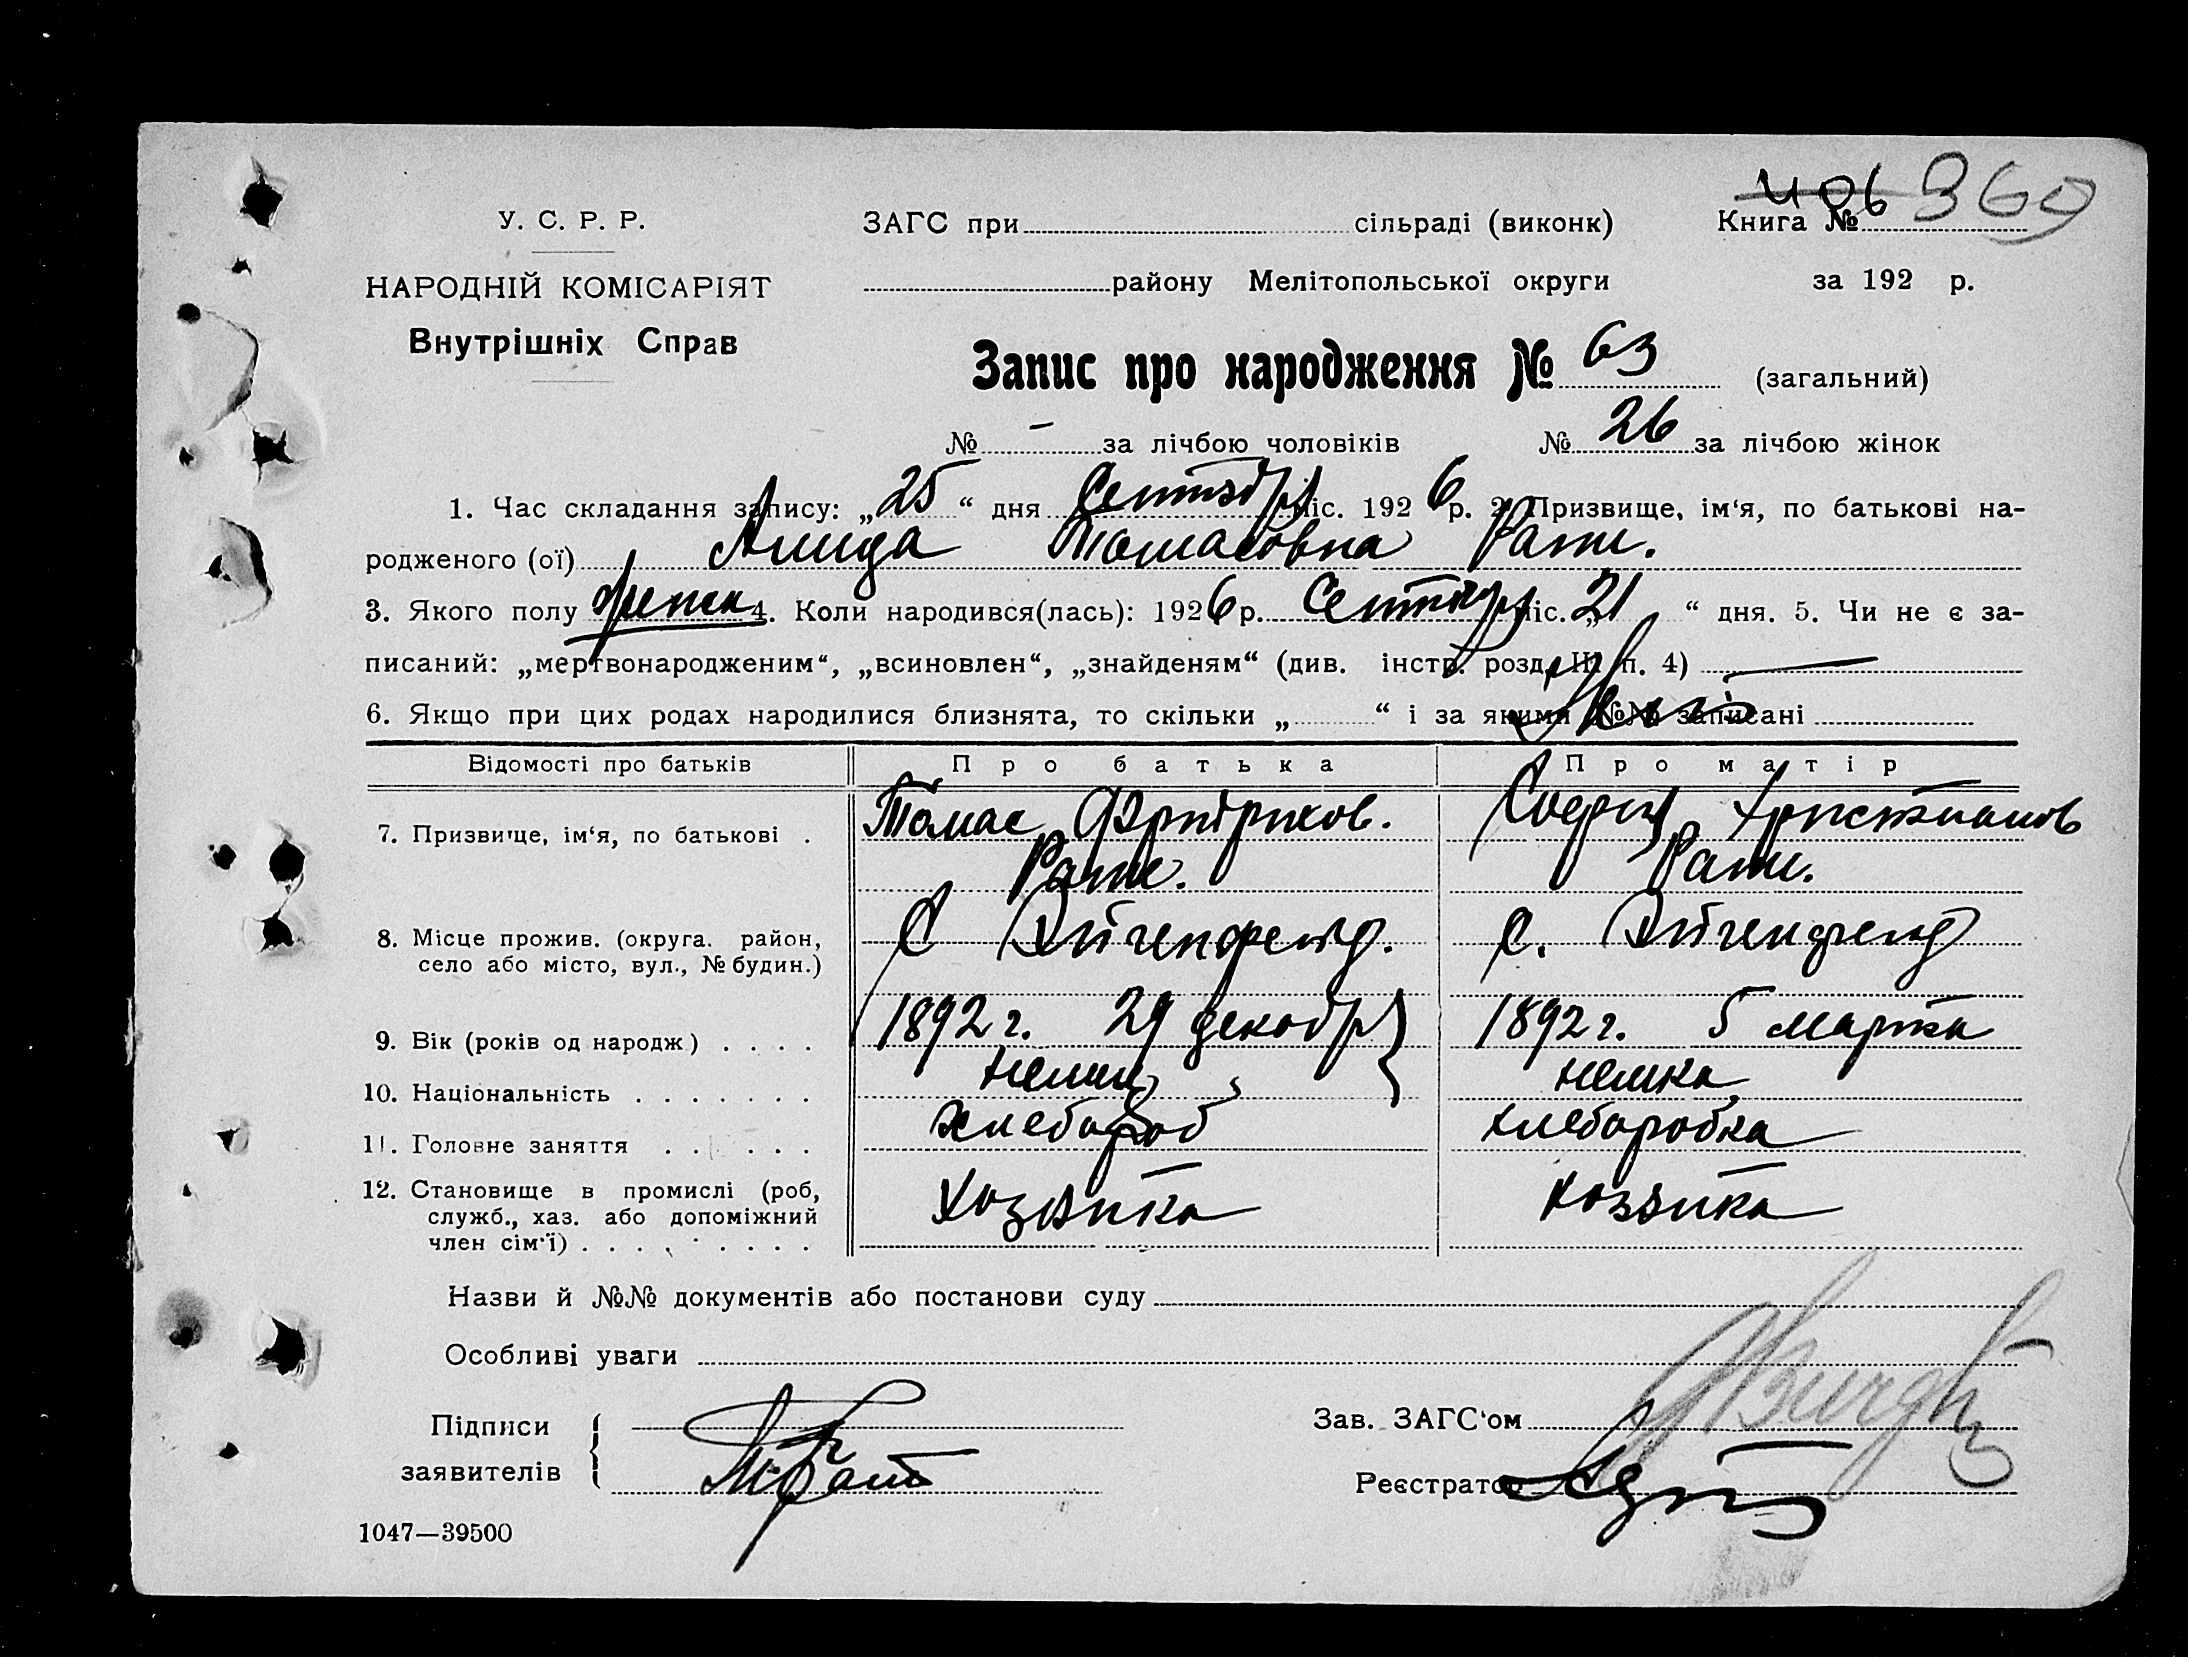 406 369
У. С. Р. Р. ЗАГС при сільраді (виконк) Книга №
НАРОДНІЙ КОМІСАРІЯТ району Мелітопольської округи за 192 р.
Внутрішніх Справ
Запис про народження № 63 (загальний)
№ — за лічбою чоловіків № 26 за лічбою жінок
1. Час складання запису: „25“ дня Сентябр міс. 1926 р. 2. Призвище, ім‘я, по батькові на-
родженого (ої) Алида Томасовна Рати.
3. Якого полу женск 4. Коли народився(лась): 1926 р. Сентябр міс. „21“ дня. 5. Чи не є за-
писаний: „мертвонародженим“, „всиновлен“, „знайденям“ (див. інстр. розд. III п. 4) —
6. Якщо при цих родах народилися близнята, то скільки „ “ і за якими №№ записані
Відомості про батьків Про батька Про матір
7. Призвище, ім‘я, по батькові . Томас Фридрихов. София Христианов
Рати. Рати.
8. Місце прожив. (округа. район, С С.
село або місто, вул., № будин.)
9. Вік (років од народж) . . . . 1892 г. 29 декабр 1892 г. 5 марта
10. Національність . . . . . . . немец немка
11. Головне заняття . . . . . . хлебороб хлеборобка
12. Становище в промислі (роб, хозяйка хозяйка
служб., хаз. або допоміжний
член сім‘ї) . . . . . . . . .
Назви й №№ документів або постанови суду
Особливі уваги
Підписи Зав. ЗАГС‘ом
заявителів Реєстратор
1047—39500